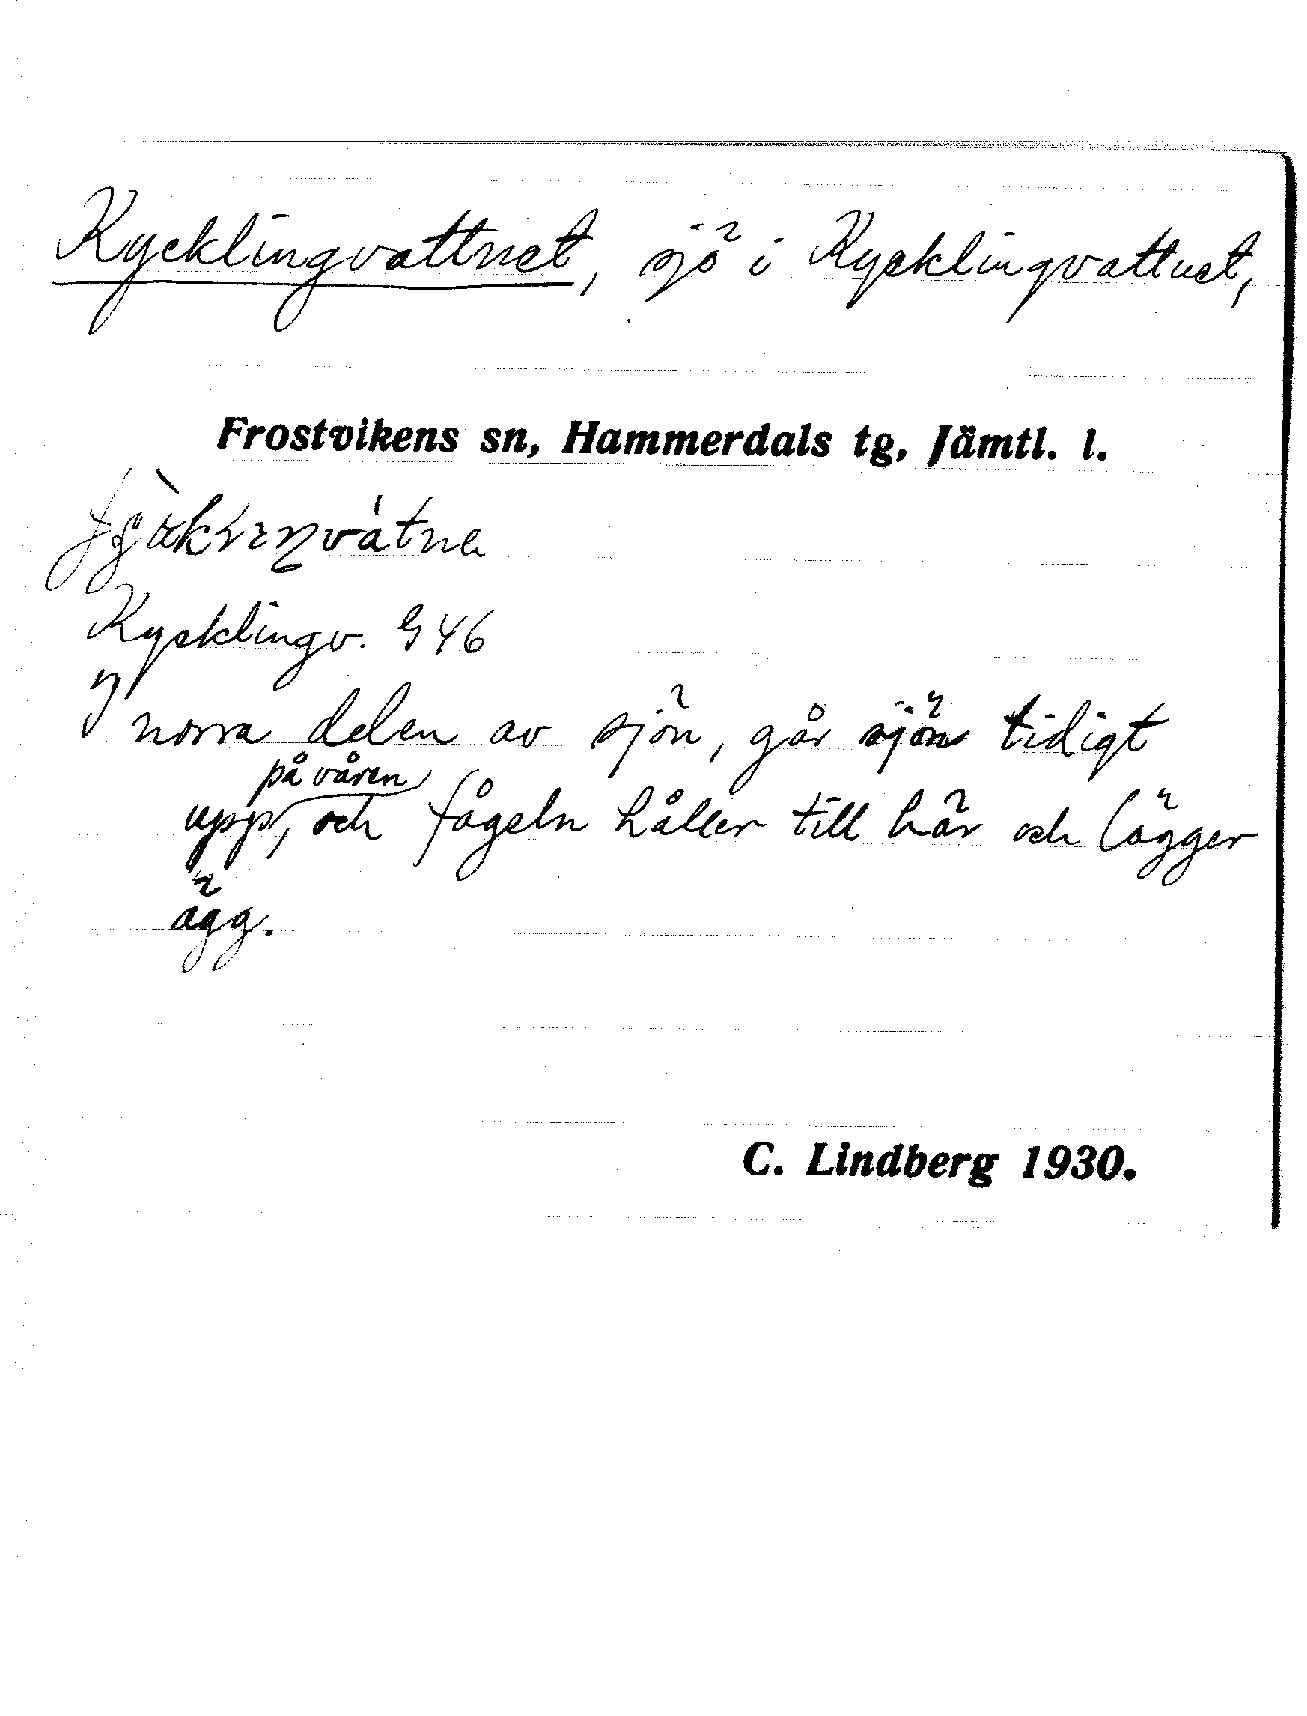 Kycklingvattnet, sjö i Kycklingvattnet,
Frostvikens sn, Hammerdals tg, Jämtl. l.
Kycklingv. G 46
I norra delen av sjön, går sjön tidigt
på våren
upp, och fågeln håller till här och lägger
ägg.
C. Lindberg 1930.